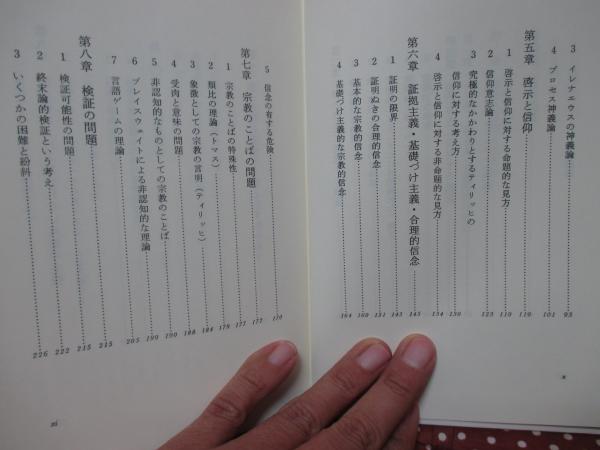 3 イレナエウスの神義論 93
4 プロセス神義論 101
第五章 啓示と信仰 110
1 啓示と信仰に対する命題的な見方 110
2 信仰意志論 123
3 究極的なかかわりとするティリッヒの
信仰に対する考え方 130
4 啓示と信仰に対する非命題的な見方 134
第六章 証拠主義・基礎づけ主義・合理的信念 143
1 証明の限界 143
2 証明ぬきの合理的信念 151
3 基本的な宗教的信念 160
4 基礎づけ主義的な宗教的信念 164
x
5 信念の有する危険 170
第七章 宗教のことばの問題 177
1 宗教のことばの特殊性 177
2 類比の理論(トマス) 179
3 象徴としての宗教の言明(ティリッヒ) 184
4 受肉と意味の問題 188
5 非認知的なものとしての宗教のことば 190
6 ブレイスウェイトによる非認知的な理論 199
7 言語ゲームの理論 205
第八章 検証の問題 215
1 検証可能性の問題 215
2 終末論的検証という考え 222
3 いくつかの困難と紛糾 226
xi